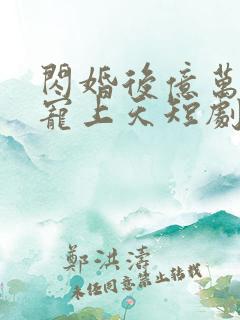 閃婚後億萬
寵上天短劇
鄭洪濤
未经同意禁止转载